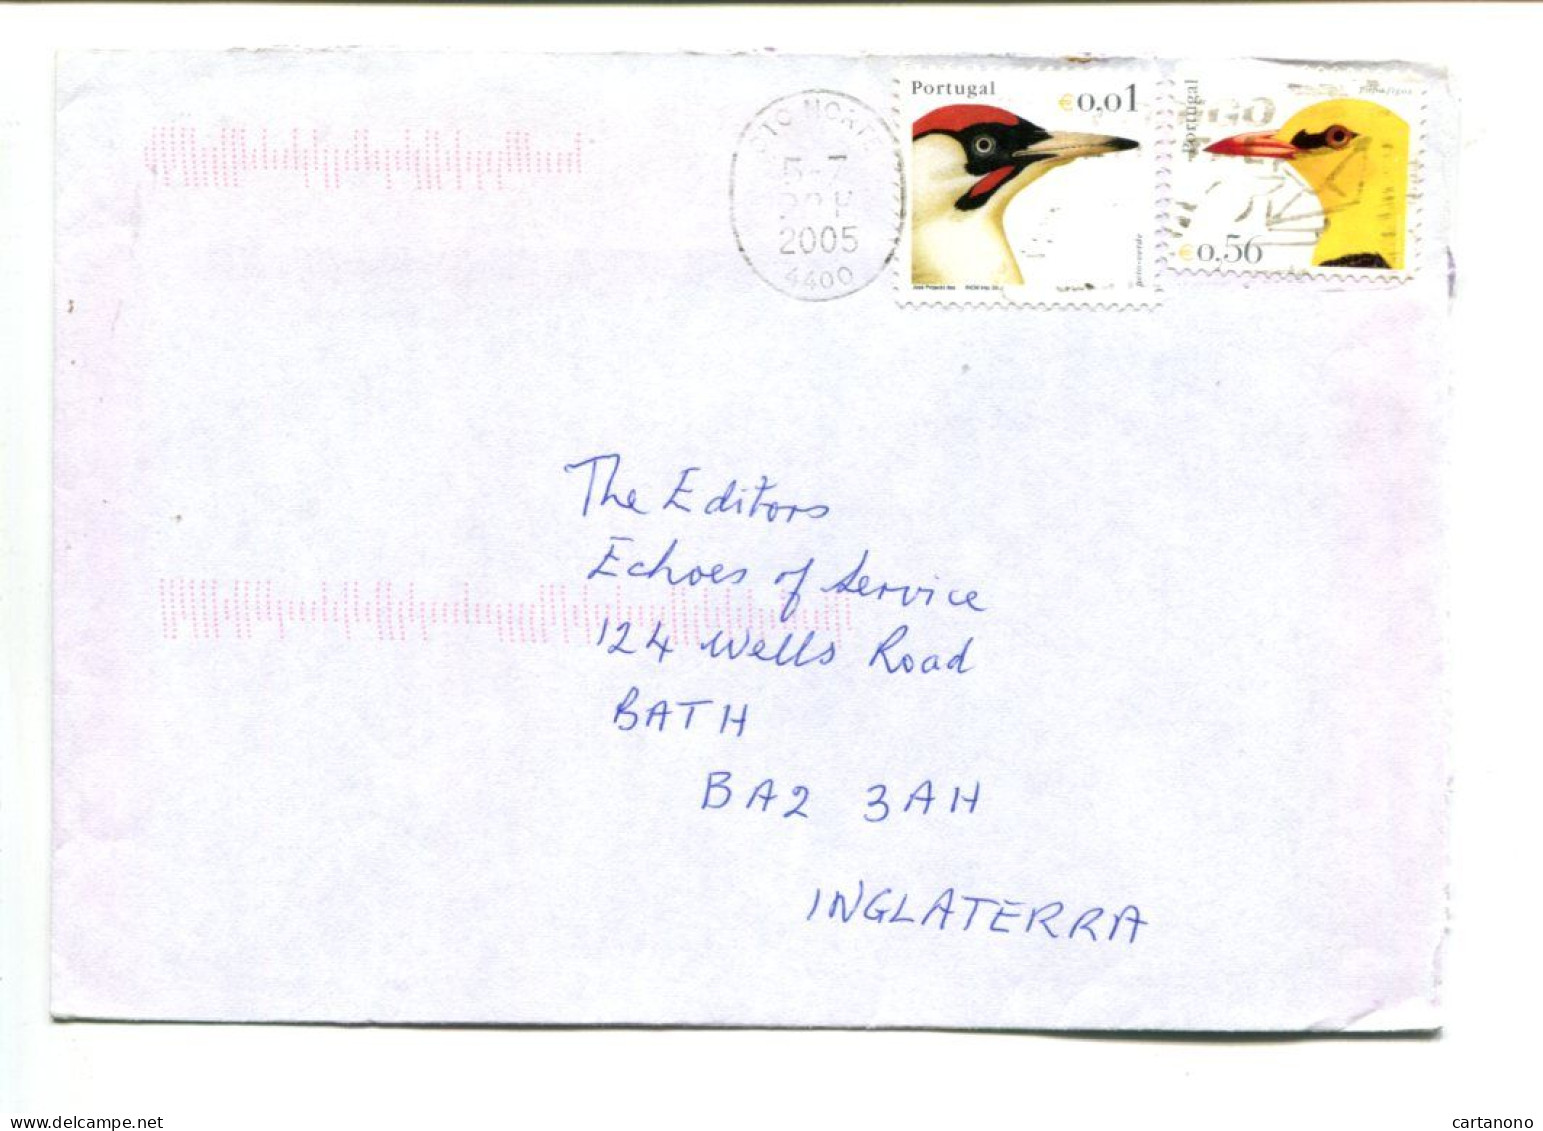 Portugal
€0,01
Portugal
Papafigos
€0,56
peto-verde
5-7
2005
4400
The Editors
Echoes of Service
124 Wells Road
BATH
BA2 3AH
INGLATERRA
www.delcampe.net
cartanono